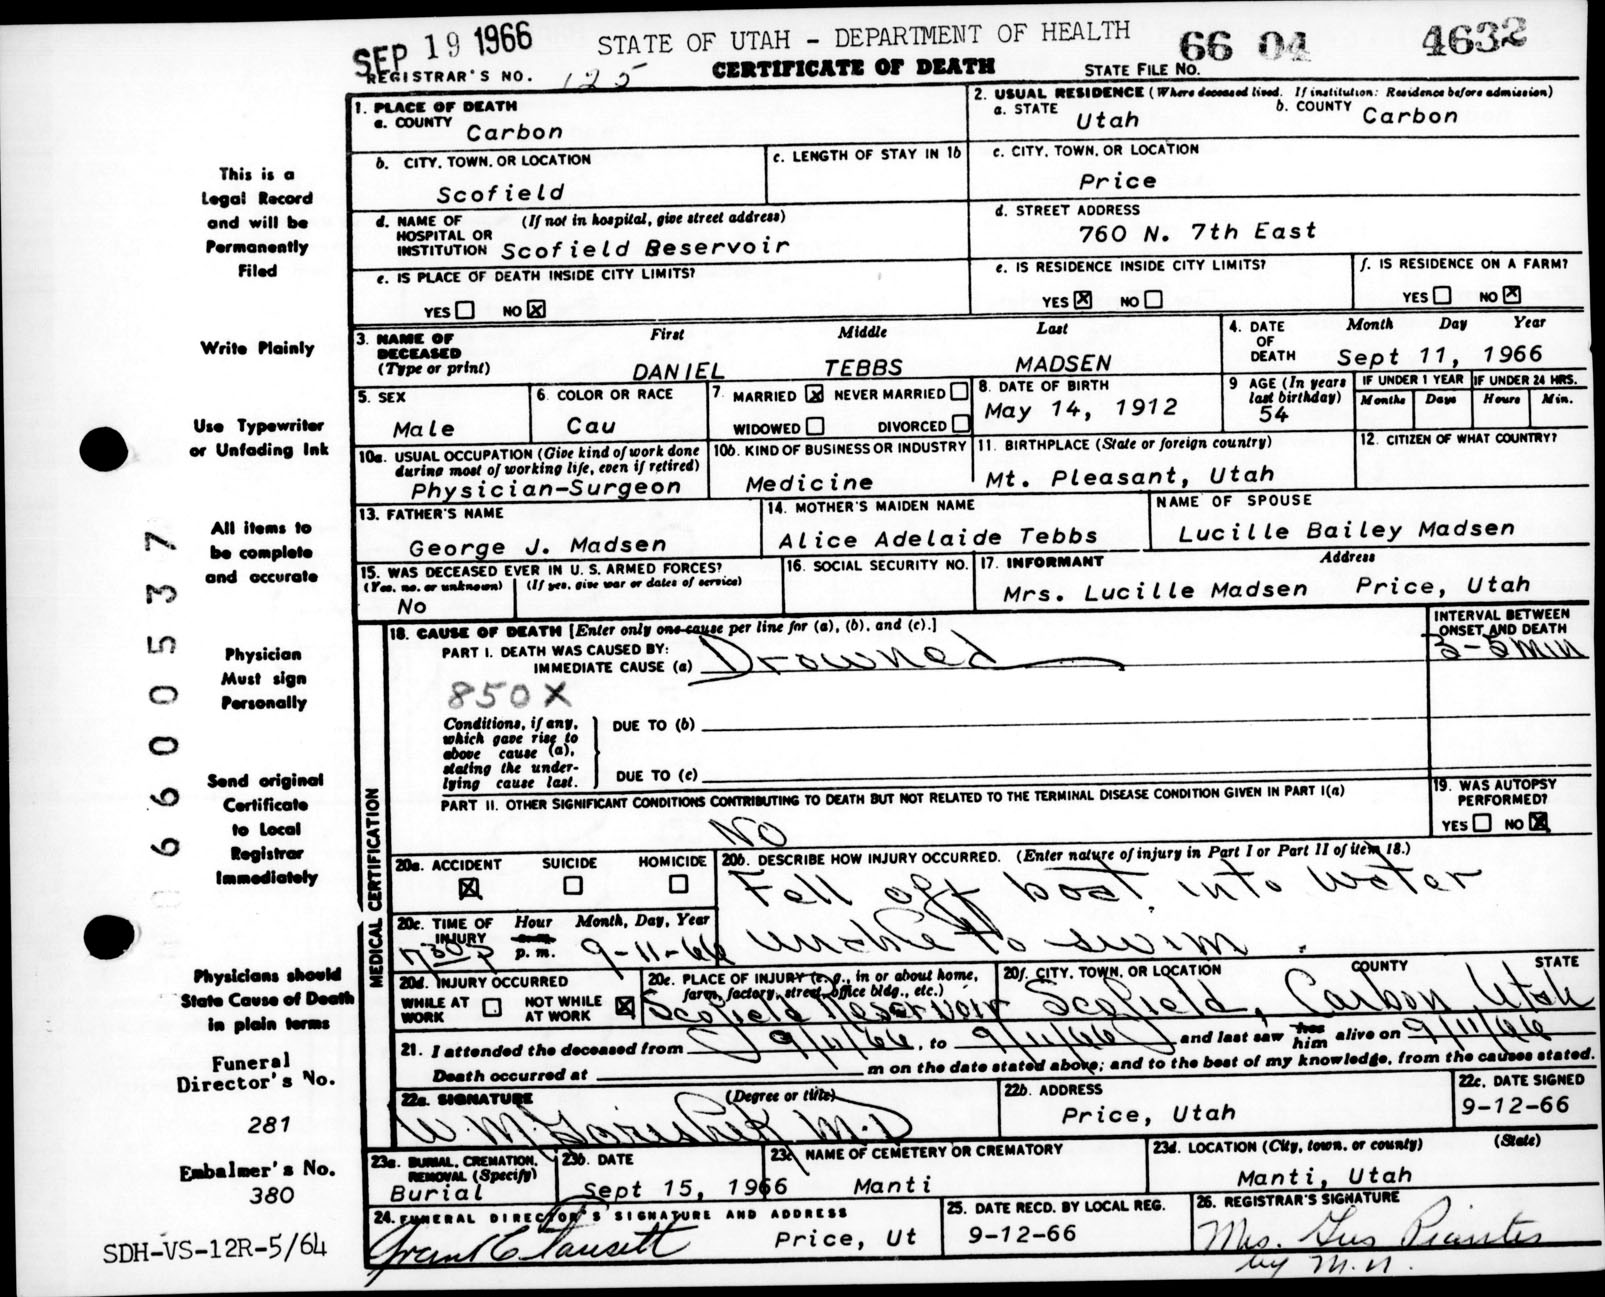 SEP 19 1966
STATE OF UTAH - DEPARTMENT OF HEALTH
66 04 4632
REGISTRAR'S NO. 125
CERTIFICATE OF DEATH
STATE FILE NO.
1. PLACE OF DEATH
a. COUNTY Carbon
2. USUAL RESIDENCE (Where deceased lived. If institution: Residence before admission)
a. STATE Utah b. COUNTY Carbon
b. CITY, TOWN, OR LOCATION Scofield
c. LENGTH OF STAY IN 1b
c. CITY, TOWN, OR LOCATION Price
d. NAME OF HOSPITAL OR INSTITUTION (If not in hospital, give street address) Scofield Reservoir
d. STREET ADDRESS 760 N. 7th East
e. IS PLACE OF DEATH INSIDE CITY LIMITS?
YES NO X
e. IS RESIDENCE INSIDE CITY LIMITS?
YES X NO
f. IS RESIDENCE ON A FARM?
YES NO X
3. NAME OF DECEASED (Type or print)
First Middle Last
DANIEL TEBBS MADSEN
4. DATE OF DEATH Month Day Year
Sept 11, 1966
5. SEX Male
6. COLOR OR RACE Cau
7. MARRIED X NEVER MARRIED
WIDOWED DIVORCED
8. DATE OF BIRTH May 14, 1912
9 AGE (In years last birthday) 54
IF UNDER 1 YEAR Months Days
IF UNDER 24 HRS. Hours Min.
10a. USUAL OCCUPATION (Give kind of work done during most of working life, even if retired)
Physician-Surgeon
10b. KIND OF BUSINESS OR INDUSTRY
Medicine
11. BIRTHPLACE (State or foreign country)
Mt. Pleasant, Utah
12. CITIZEN OF WHAT COUNTRY?
13. FATHER'S NAME
George J. Madsen
14. MOTHER'S MAIDEN NAME
Alice Adelaide Tebbs
NAME OF SPOUSE
Lucille Bailey Madsen
15. WAS DECEASED EVER IN U. S. ARMED FORCES?
(Yes, no, or unknown) (If yes, give war or dates of service)
No
16. SOCIAL SECURITY NO.
17. INFORMANT Address
Mrs. Lucille Madsen Price, Utah
MEDICAL CERTIFICATION
18. CAUSE OF DEATH [Enter only one cause per line for (a), (b), and (c).]
INTERVAL BETWEEN ONSET AND DEATH
PART I. DEATH WAS CAUSED BY:
IMMEDIATE CAUSE (a) Drowned
3-5 min
850X
Conditions, if any, which gave rise to above cause (a), stating the underlying cause last.
DUE TO (b)
DUE TO (c)
PART II. OTHER SIGNIFICANT CONDITIONS CONTRIBUTING TO DEATH BUT NOT RELATED TO THE TERMINAL DISEASE CONDITION GIVEN IN PART I(a)
NO
19. WAS AUTOPSY PERFORMED?
YES NO X
20a. ACCIDENT X SUICIDE HOMICIDE
20b. DESCRIBE HOW INJURY OCCURRED. (Enter nature of injury in Part I or Part II of item 18.)
Fell off boat into water
unable to swim
20c. TIME OF INJURY Hour a.m. p.m. Month, Day, Year
730 P 9-11-66
20d. INJURY OCCURRED
WHILE AT WORK NOT WHILE AT WORK X
20e. PLACE OF INJURY (e. g., in or about home, farm, factory, street, office bldg., etc.)
Scofield Reservoir
20f. CITY, TOWN, OR LOCATION COUNTY STATE
Scofield, Carbon, Utah
21. I attended the deceased from 9/11/66, to 9/11/66 and last saw her him alive on 9/11/66
Death occurred at m on the date stated above; and to the best of my knowledge, from the causes stated.
22a. SIGNATURE (Degree or title)
W. M. Gorishek M.D
22b. ADDRESS
Price, Utah
22c. DATE SIGNED
9-12-66
23a. BURIAL, CREMATION, REMOVAL (Specify)
Burial
23b. DATE
Sept 15, 1966
23c. NAME OF CEMETERY OR CREMATORY
Manti
23d. LOCATION (City, town, or county) (State)
Manti, Utah
24. FUNERAL DIRECTOR'S SIGNATURE AND ADDRESS
Grant C Fausett Price, Ut
25. DATE RECD. BY LOCAL REG.
9-12-66
26. REGISTRAR'S SIGNATURE
Mrs. Gus
by M.N.
This is a
Legal Record
and will be
Permanently
Filed
Write Plainly
Use Typewriter
or Unfading Ink
All items to
be complete
and accurate
Physician
Must sign
Personally
Send original
Certificate
to Local
Registrar
Immediately
Physicians should
State Cause of Death
in plain terms
Funeral
Director's No.
281
Embalmer's No.
380
SDH-VS-12R-5/64
06600537